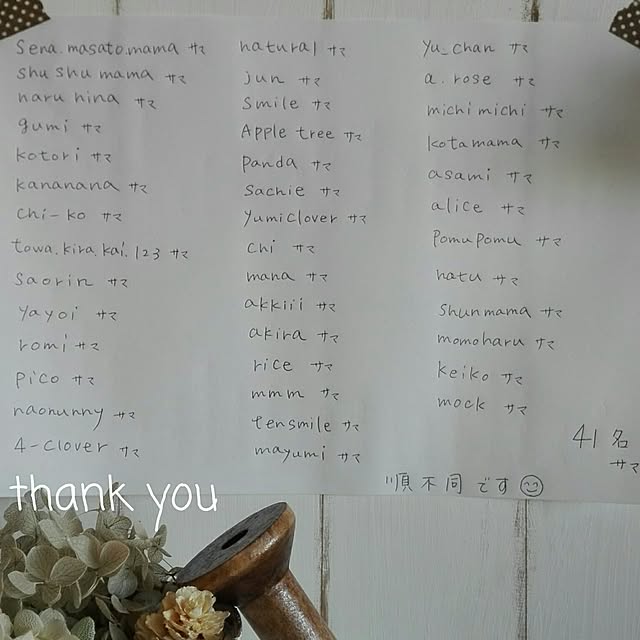 Sena.masato.mama サマ
shu shu mama サマ
naru hina サマ
gumi サマ
kotori サマ
kananana サマ
chi-ko サマ
towa.kira.kai.123 サマ
saorin サマ
yayoi サマ
romi サマ
pico サマ
naonunny サマ
4-clover サマ
natural サマ
jun サマ
smile サマ
Apple tree サマ
panda サマ
sachie サマ
yumiclover サマ
chi サマ
mana サマ
akkiii サマ
akira サマ
rice サマ
mmm サマ
tensmile サマ
mayumi サマ
yu_chan サマ
a.rose サマ
michi michi サマ
kotamama サマ
asami サマ
alice サマ
pomupomu サマ
natu サマ
shunmama サマ
momoharu サマ
keiko サマ
mock サマ
41名
サマ
順不同です☺
thank you